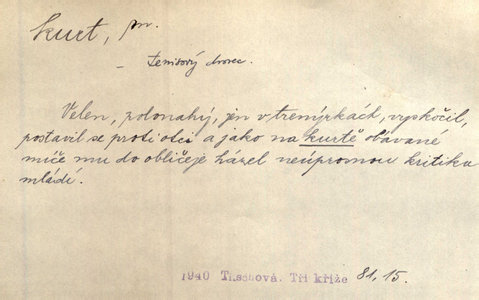 kurt, m.
– tenisový dvorec.
Velen, polonahý, jen v trenýrkách, vyskočil,
postavil se proti otci a jako na kurtě obávané
míče mu do obličeje házel neúprosnou kritiku
mládí.
1940 Tilschová. Tři kříže 81, 15.